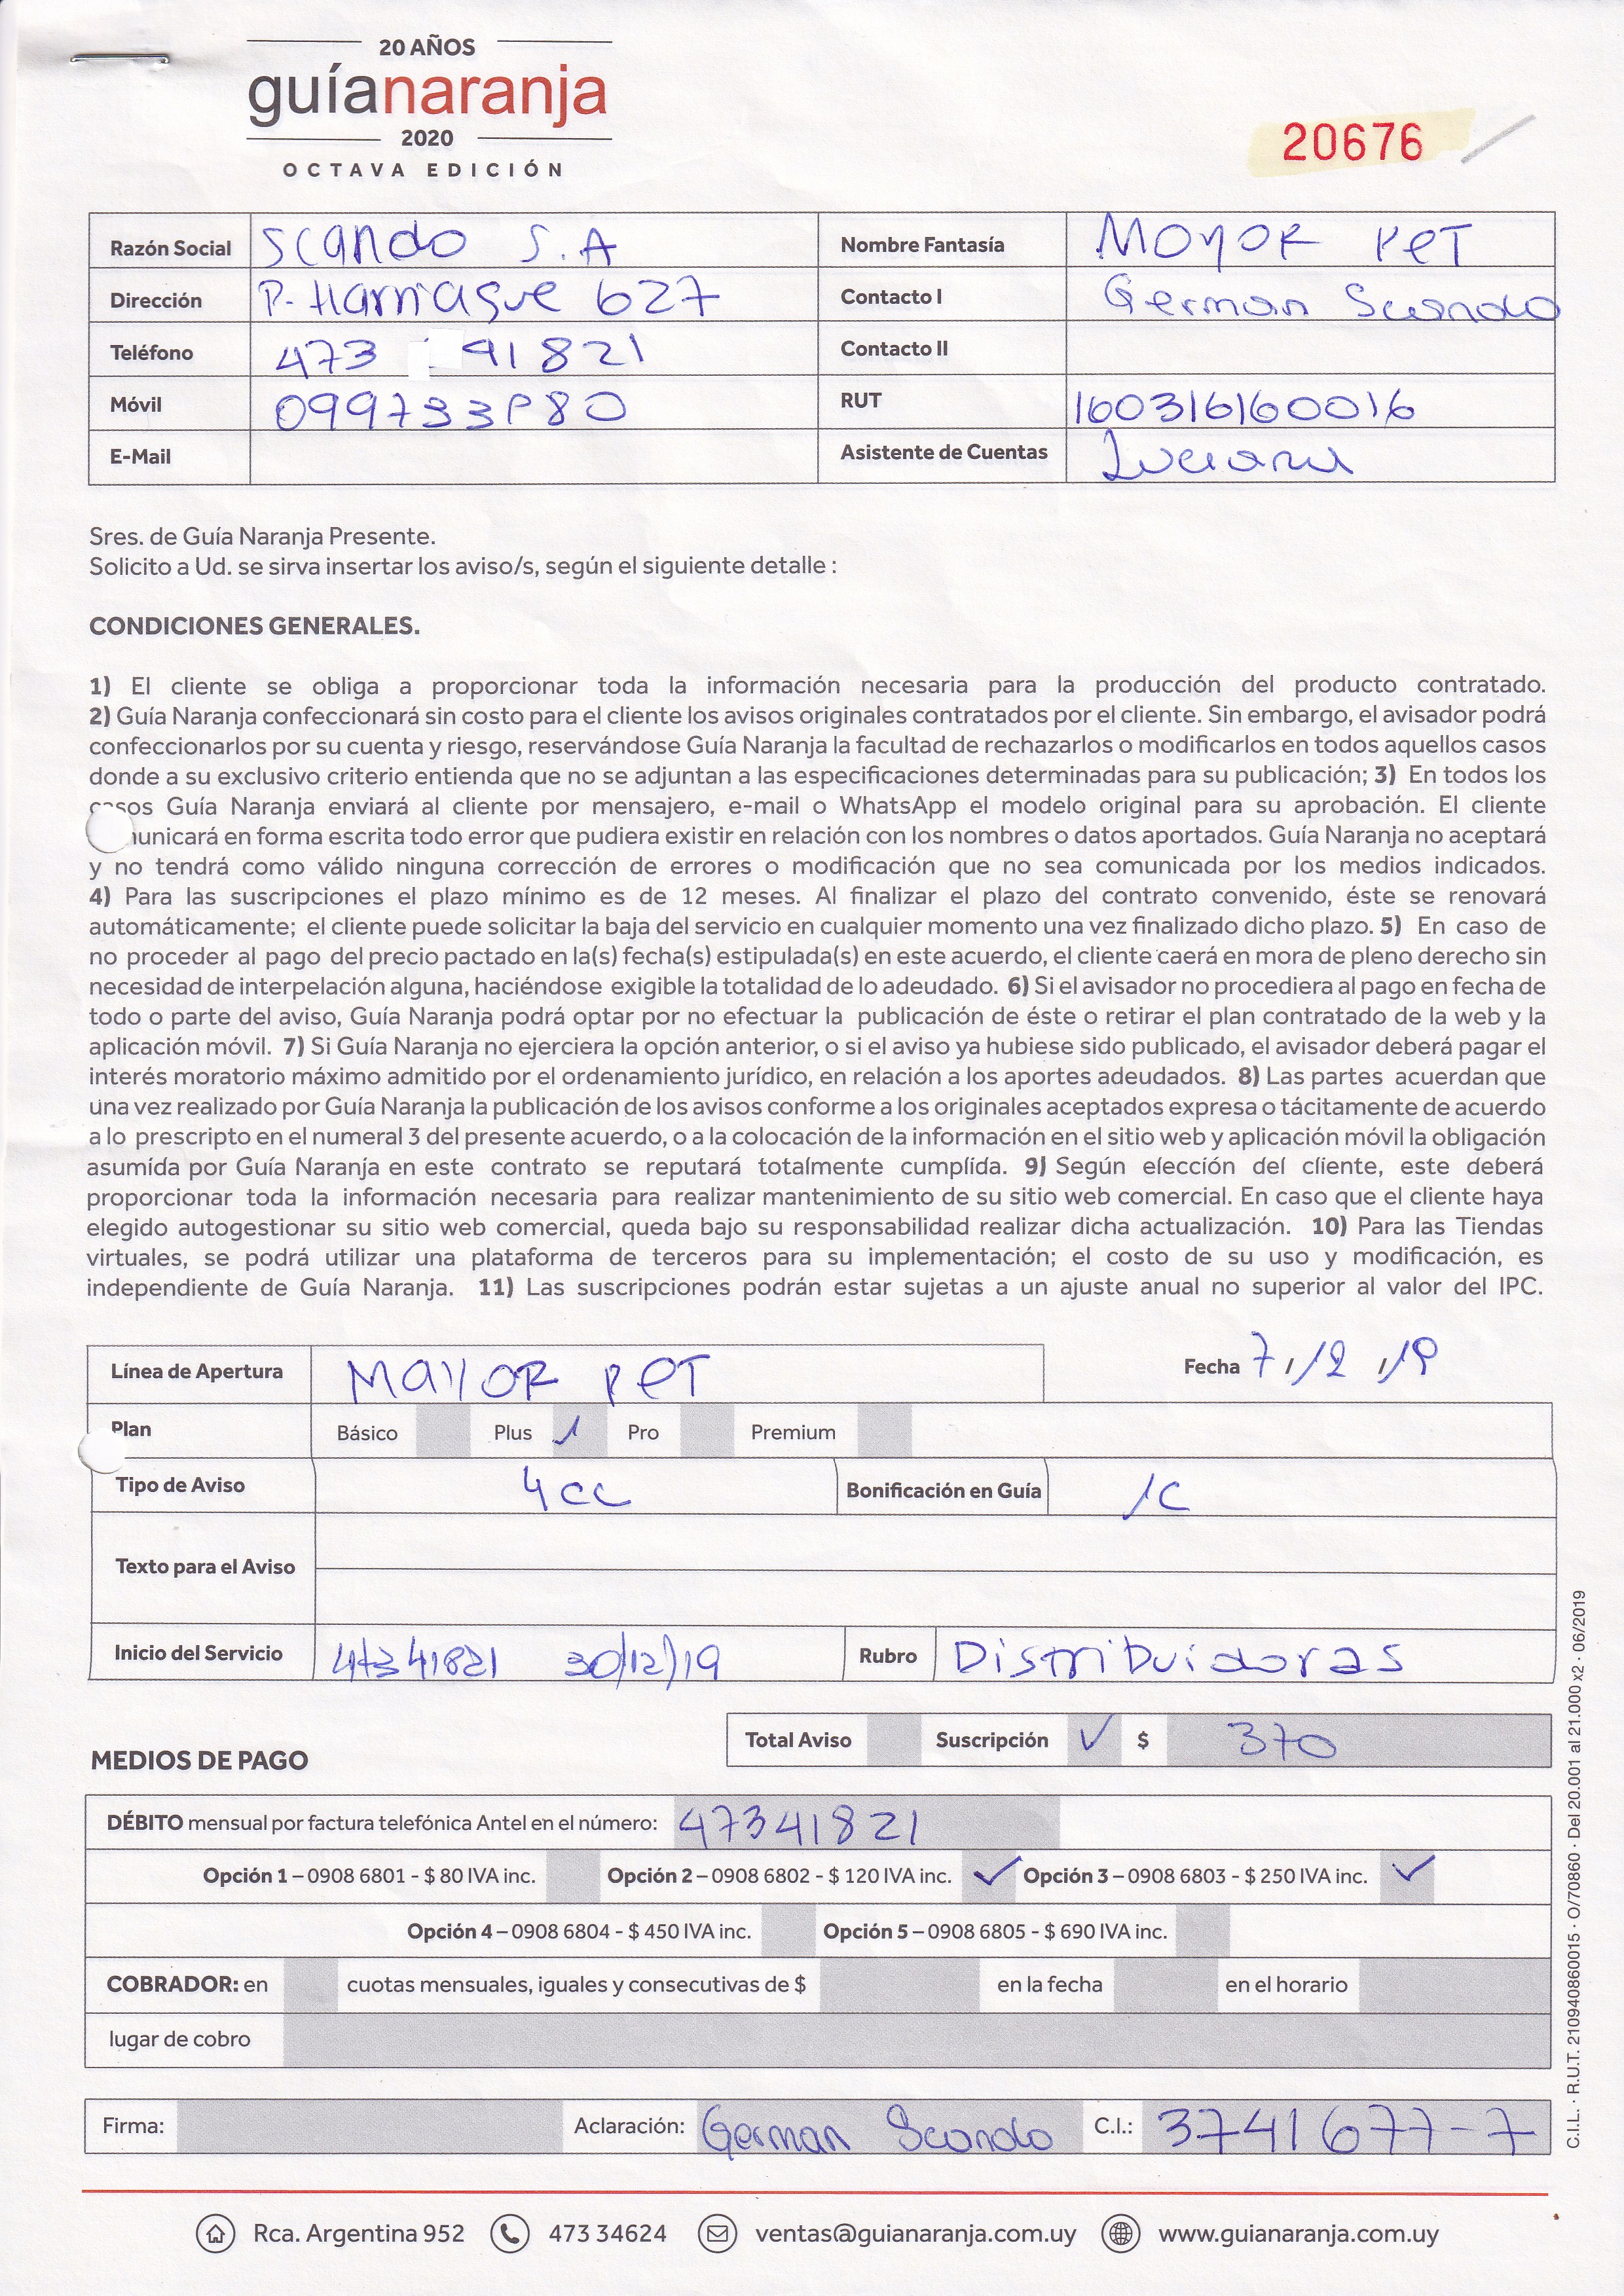 20 AÑOS
guíanaranja
2020
OCTAVA EDICIÓN
20676
Razón Social Scando S.A Nombre Fantasía Mayor Pet
Dirección P. Harriague 627 Contacto I German Scando
Teléfono 473 41821 Contacto II
Móvil RUT 160316160016
E-Mail Asistente de Cuentas Luciana
Sres. de Guía Naranja Presente.
Solicito a Ud. se sirva insertar los aviso/s, según el siguiente detalle :
CONDICIONES GENERALES.
1) El cliente se obliga a proporcionar toda la información necesaria para la producción del producto contratado.
2) Guía Naranja confeccionará sin costo para el cliente los avisos originales contratados por el cliente. Sin embargo, el avisador podrá
confeccionarlos por su cuenta y riesgo, reservándose Guía Naranja la facultad de rechazarlos o modificarlos en todos aquellos casos
donde a su exclusivo criterio entienda que no se adjuntan a las especificaciones determinadas para su publicación; 3) En todos los
casos Guía Naranja enviará al cliente por mensajero, e-mail o WhatsApp el modelo original para su aprobación. El cliente
unicará en forma escrita todo error que pudiera existir en relación con los nombres o datos aportados. Guía Naranja no aceptará
y no tendrá como válido ninguna corrección de errores o modificación que no sea comunicada por los medios indicados.
4) Para las suscripciones el plazo mínimo es de 12 meses. Al finalizar el plazo del contrato convenido, éste se renovará
automáticamente; el cliente puede solicitar la baja del servicio en cualquier momento una vez finalizado dicho plazo. 5) En caso de
no proceder al pago del precio pactado en la(s) fecha(s) estipulada(s) en este acuerdo, el cliente caerá en mora de pleno derecho sin
necesidad de interpelación alguna, haciéndose exigible la totalidad de lo adeudado. 6) Si el avisador no procediera al pago en fecha de
todo o parte del aviso, Guía Naranja podrá optar por no efectuar la publicación de éste o retirar el plan contratado de la web y la
aplicación móvil. 7) Si Guía Naranja no ejerciera la opción anterior, o si el aviso ya hubiese sido publicado, el avisador deberá pagar el
interés moratorio máximo admitido por el ordenamiento jurídico, en relación a los aportes adeudados. 8) Las partes acuerdan que
una vez realizado por Guía Naranja la publicación de los avisos conforme a los originales aceptados expresa o tácitamente de acuerdo
a lo prescripto en el numeral 3 del presente acuerdo, o a la colocación de la información en el sitio web y aplicación móvil la obligación
asumida por Guía Naranja en este contrato se reputará totalmente cumplida. 9) Según elección del cliente, este deberá
proporcionar toda la información necesaria para realizar mantenimiento de su sitio web comercial. En caso que el cliente haya
elegido autogestionar su sitio web comercial, queda bajo su responsabilidad realizar dicha actualización. 10) Para las Tiendas
virtuales, se podrá utilizar una plataforma de terceros para su implementación; el costo de su uso y modificación, es
independiente de Guía Naranja. 11) Las suscripciones podrán estar sujetas a un ajuste anual no superior al valor del IPC.
Línea de Apertura MAYOR PET Fecha 7/12/19
Plan Básico Plus Pro Premium
Tipo de Aviso 4cc Bonificación en Guía 1C
Texto para el Aviso
Inicio del Servicio 47341821 30/12/19 Rubro Distribuidoras
Total Aviso Suscripción ✓ $ 370
MEDIOS DE PAGO
DÉBITO mensual por factura telefónica Antel en el número: 47341821
Opción 1 – 0908 6801 - $ 80 IVA inc. Opción 2 – 0908 6802 - $ 120 IVA inc. ✓ Opción 3 – 0908 6803 - $ 250 IVA inc. ✓
Opción 4 – 0908 6804 - $ 450 IVA inc. Opción 5 – 0908 6805 - $ 690 IVA inc.
COBRADOR: en cuotas mensuales, iguales y consecutivas de $ en la fecha en el horario
lugar de cobro
Firma: Aclaración: German Scando C.I.: 3741677-7
Rca. Argentina 952 473 34624 ventas@guianaranja.com.uy www.guianaranja.com.uy
C.I.L. · R.U.T. 210940860015 · O/70860 · Del 20.001 al 21.000 x2 · 06/2019